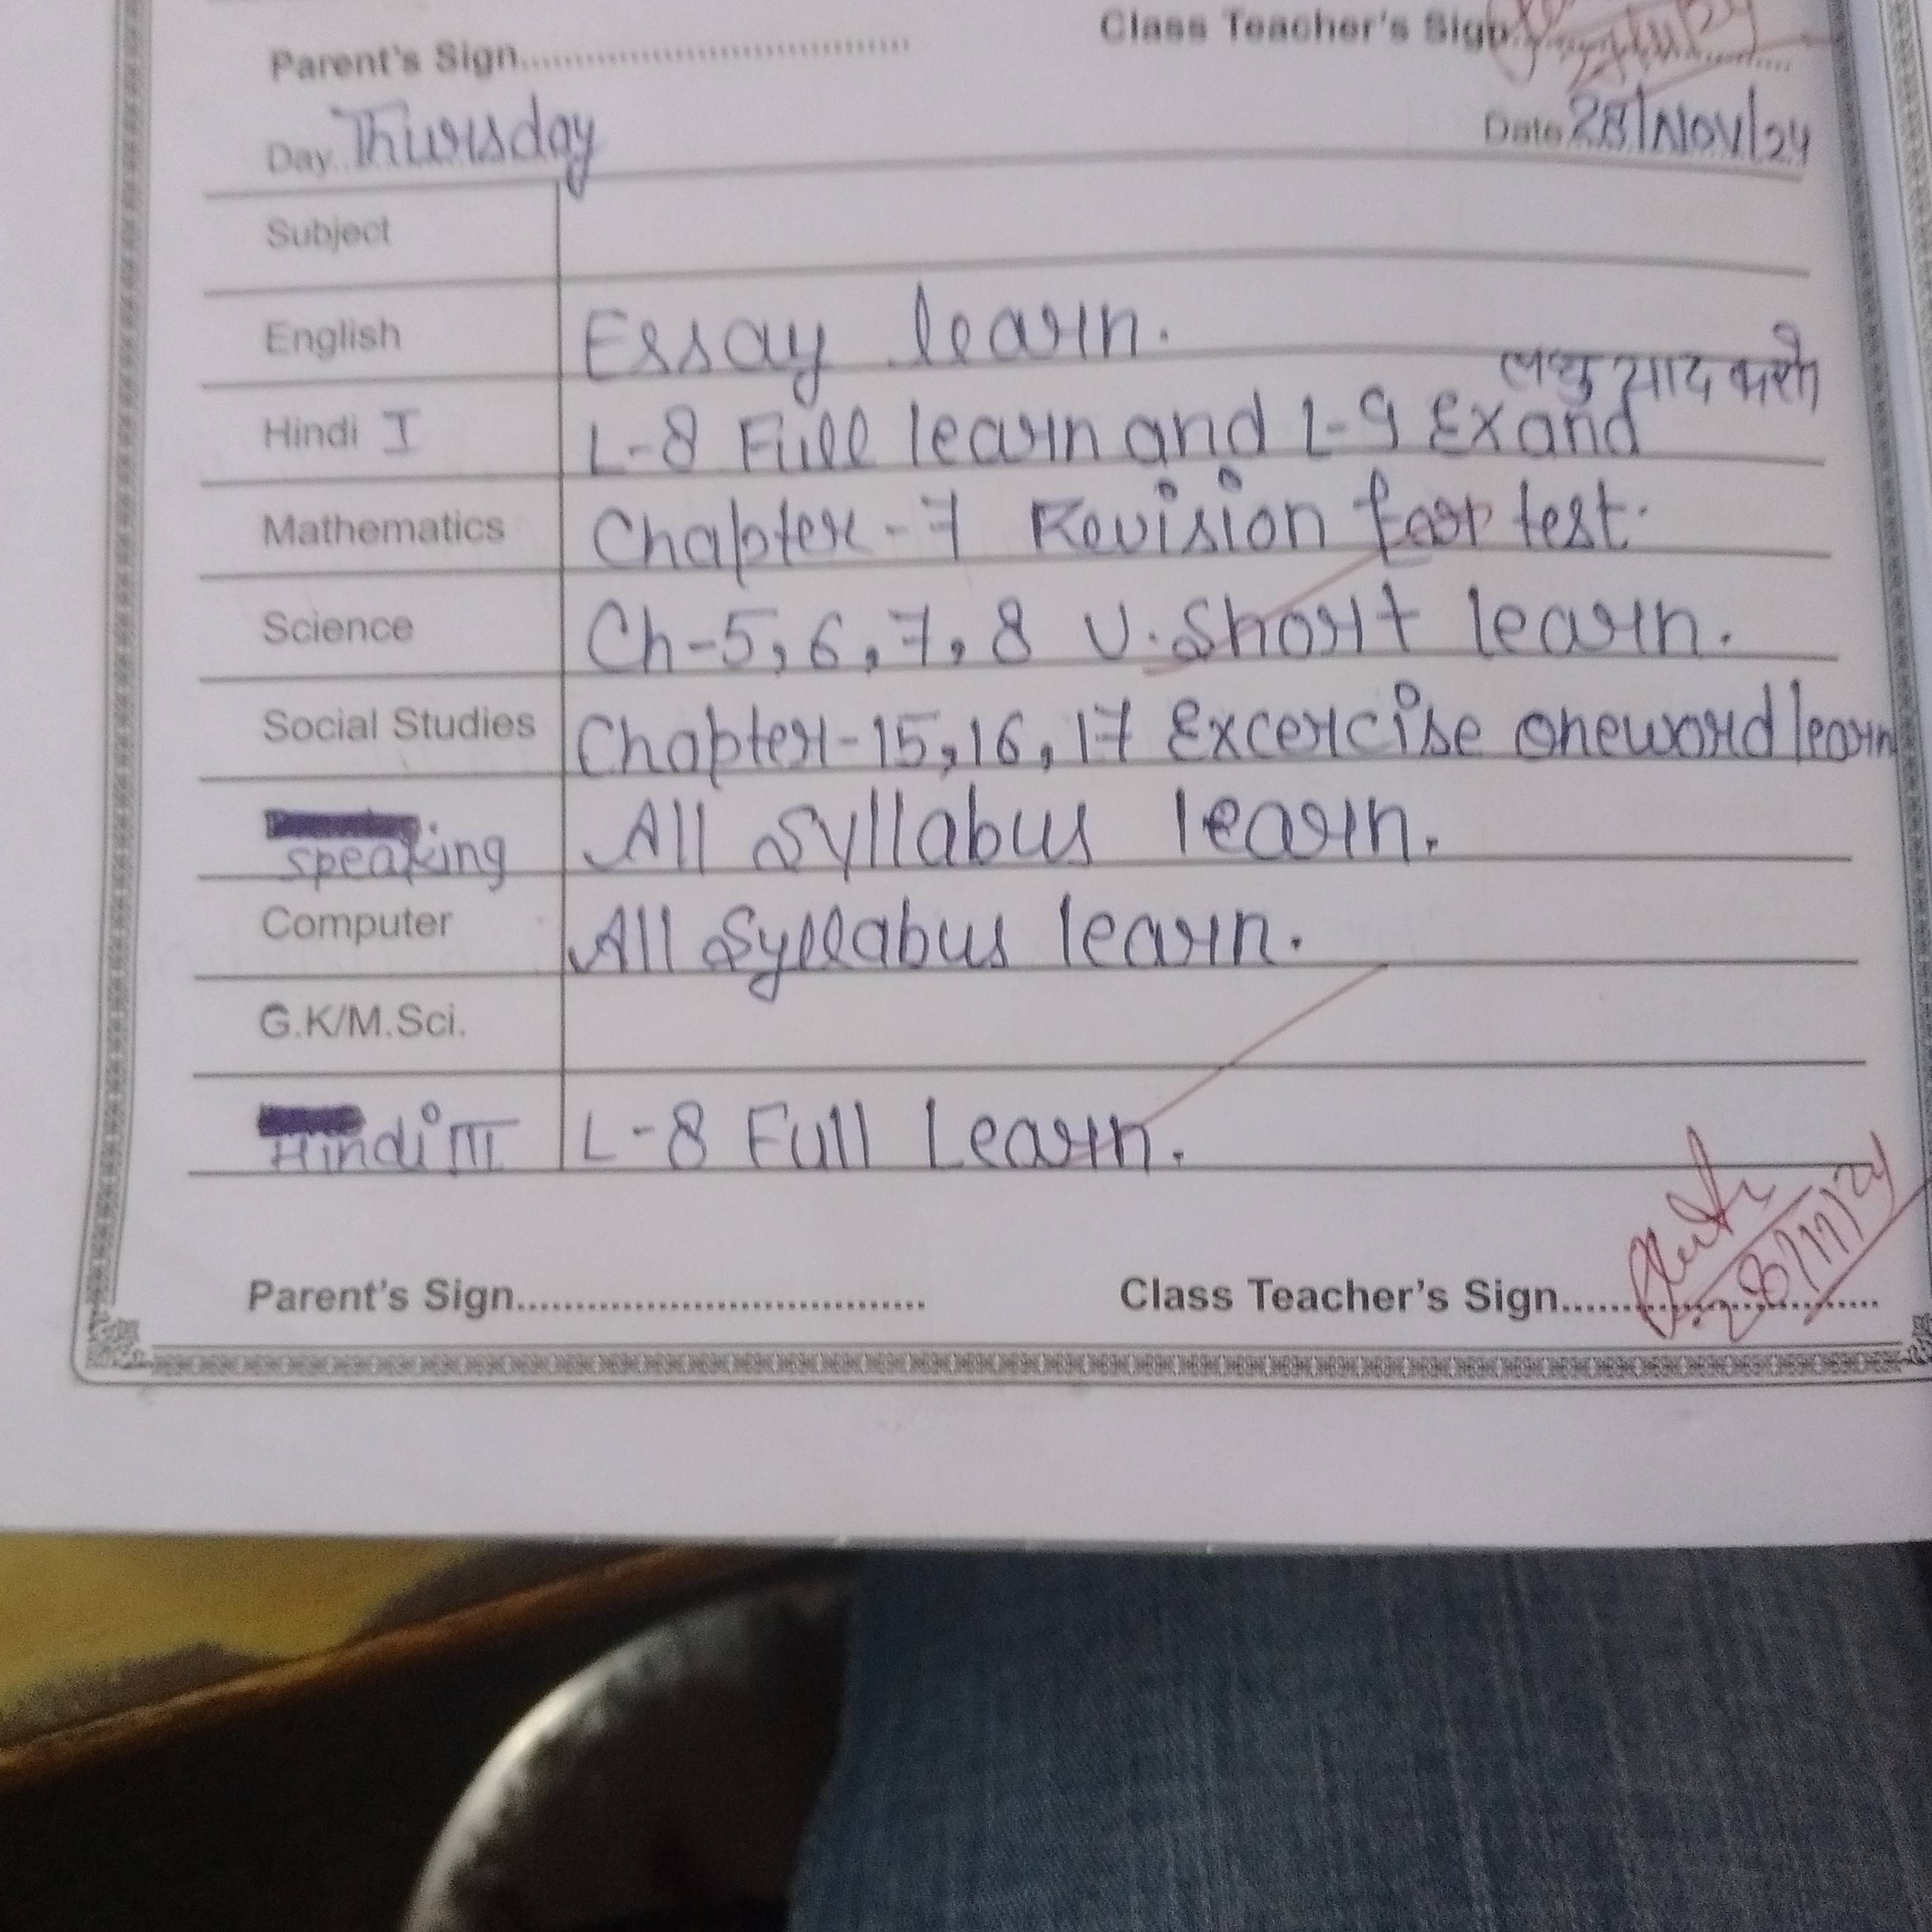 Parent's Sign.................................... Class Teacher's Sign
Day Thursday Date 28/Nov/24
Subject
English Essay learn.
Hindi I L-8 Full learn and L-9 Ex and लघु याद करो
Mathematics Chapter-7 Revision for test.
Science Ch-5, 6, 7, 8 V. Short learn.
Social Studies Chapter-15, 16, 17 Excercise oneword learn
speaking All Syllabus learn.
Computer All Syllabus learn.
G.K/M.Sci.
Hindi III L-8 Full Learn.
Parent's Sign.................................... Class Teacher's Sign............
28/11/24